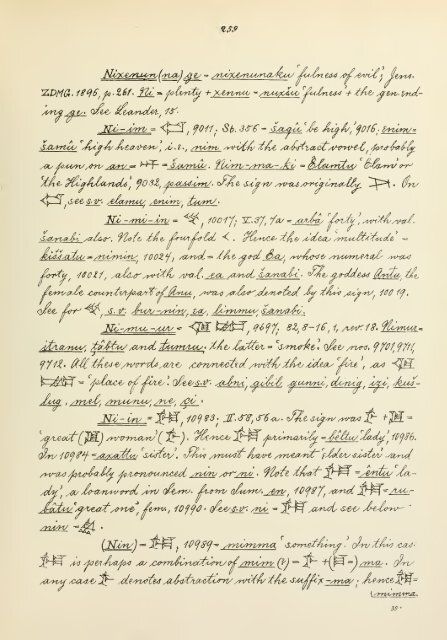 259
Nixenun(na)ge = nixenunaku 'fulness of evil'; Jens.
ZDMG. 1896, p. 261. Ni = plenty + xennu = nuxšu 'fulness' + the gen. end-
ing ge. See Leander, 15.
Ni-im = 9011; Sb. 356 = šaqû 'be high', 9016; enim =
šamû 'high heaven', i.e., nim with the abstract vowel, probably
a pun on an = šamû. Nim-ma-ki = Elamtu 'Elam' or
'the Highlands', 9032, passim. The sign was originally . On
, see s.v. elamu, enim, tum.
Ni-mi-in = , 10017; V. 37, 7a = arbâ 'forty', with val.
šanabi also. Note the fourfold <. Hence the idea 'multitude' =
kiššatu = nimin, 10024, and = the god Ea, whose numeral was
forty, 10021, also with val. ea and šanabi. The goddess Antu, the
female counterpart of Anu, was also denoted by this sign, 10019.
See for , s.v. bur-nin, ea, limmu, šanabi.
Ni-mu-ur = , 9697; 82, 8-16, 1, rev. 18. Kimuz-
itranu, ṭâbtu and tumru; the latter = 'smoke'. See nos. 9701, 9711,
9712. All these words are connected with the idea 'fire', as
= 'place of fire'. See s.v. abni, gibil, gunni, dinig, izi, kuš-
lug, mel, munu, ne, çi.
Ni-in = , 10983; II. 58, 56a. The sign was + =
'great ( ) woman' ( ). Hence primarily = bêltu 'lady', 10986.
In 10984 = axattu 'sister'. This must have meant 'elder sister' and
was probably pronounced nin or ni. Note that = êntu 'la-
dy', a loanword in Sem. from Sum. en, 10987, and = ru-
bâtu 'great one', fem., 10990. See s.v. ni = and see below
nin = .
(Nin) = , 10989 = mimma 'something'. In this case
is perhaps a combination of mim (?) = + ( ) = ma. In
any case denotes abstraction with the suffix -ma; hence =
mimma
35.